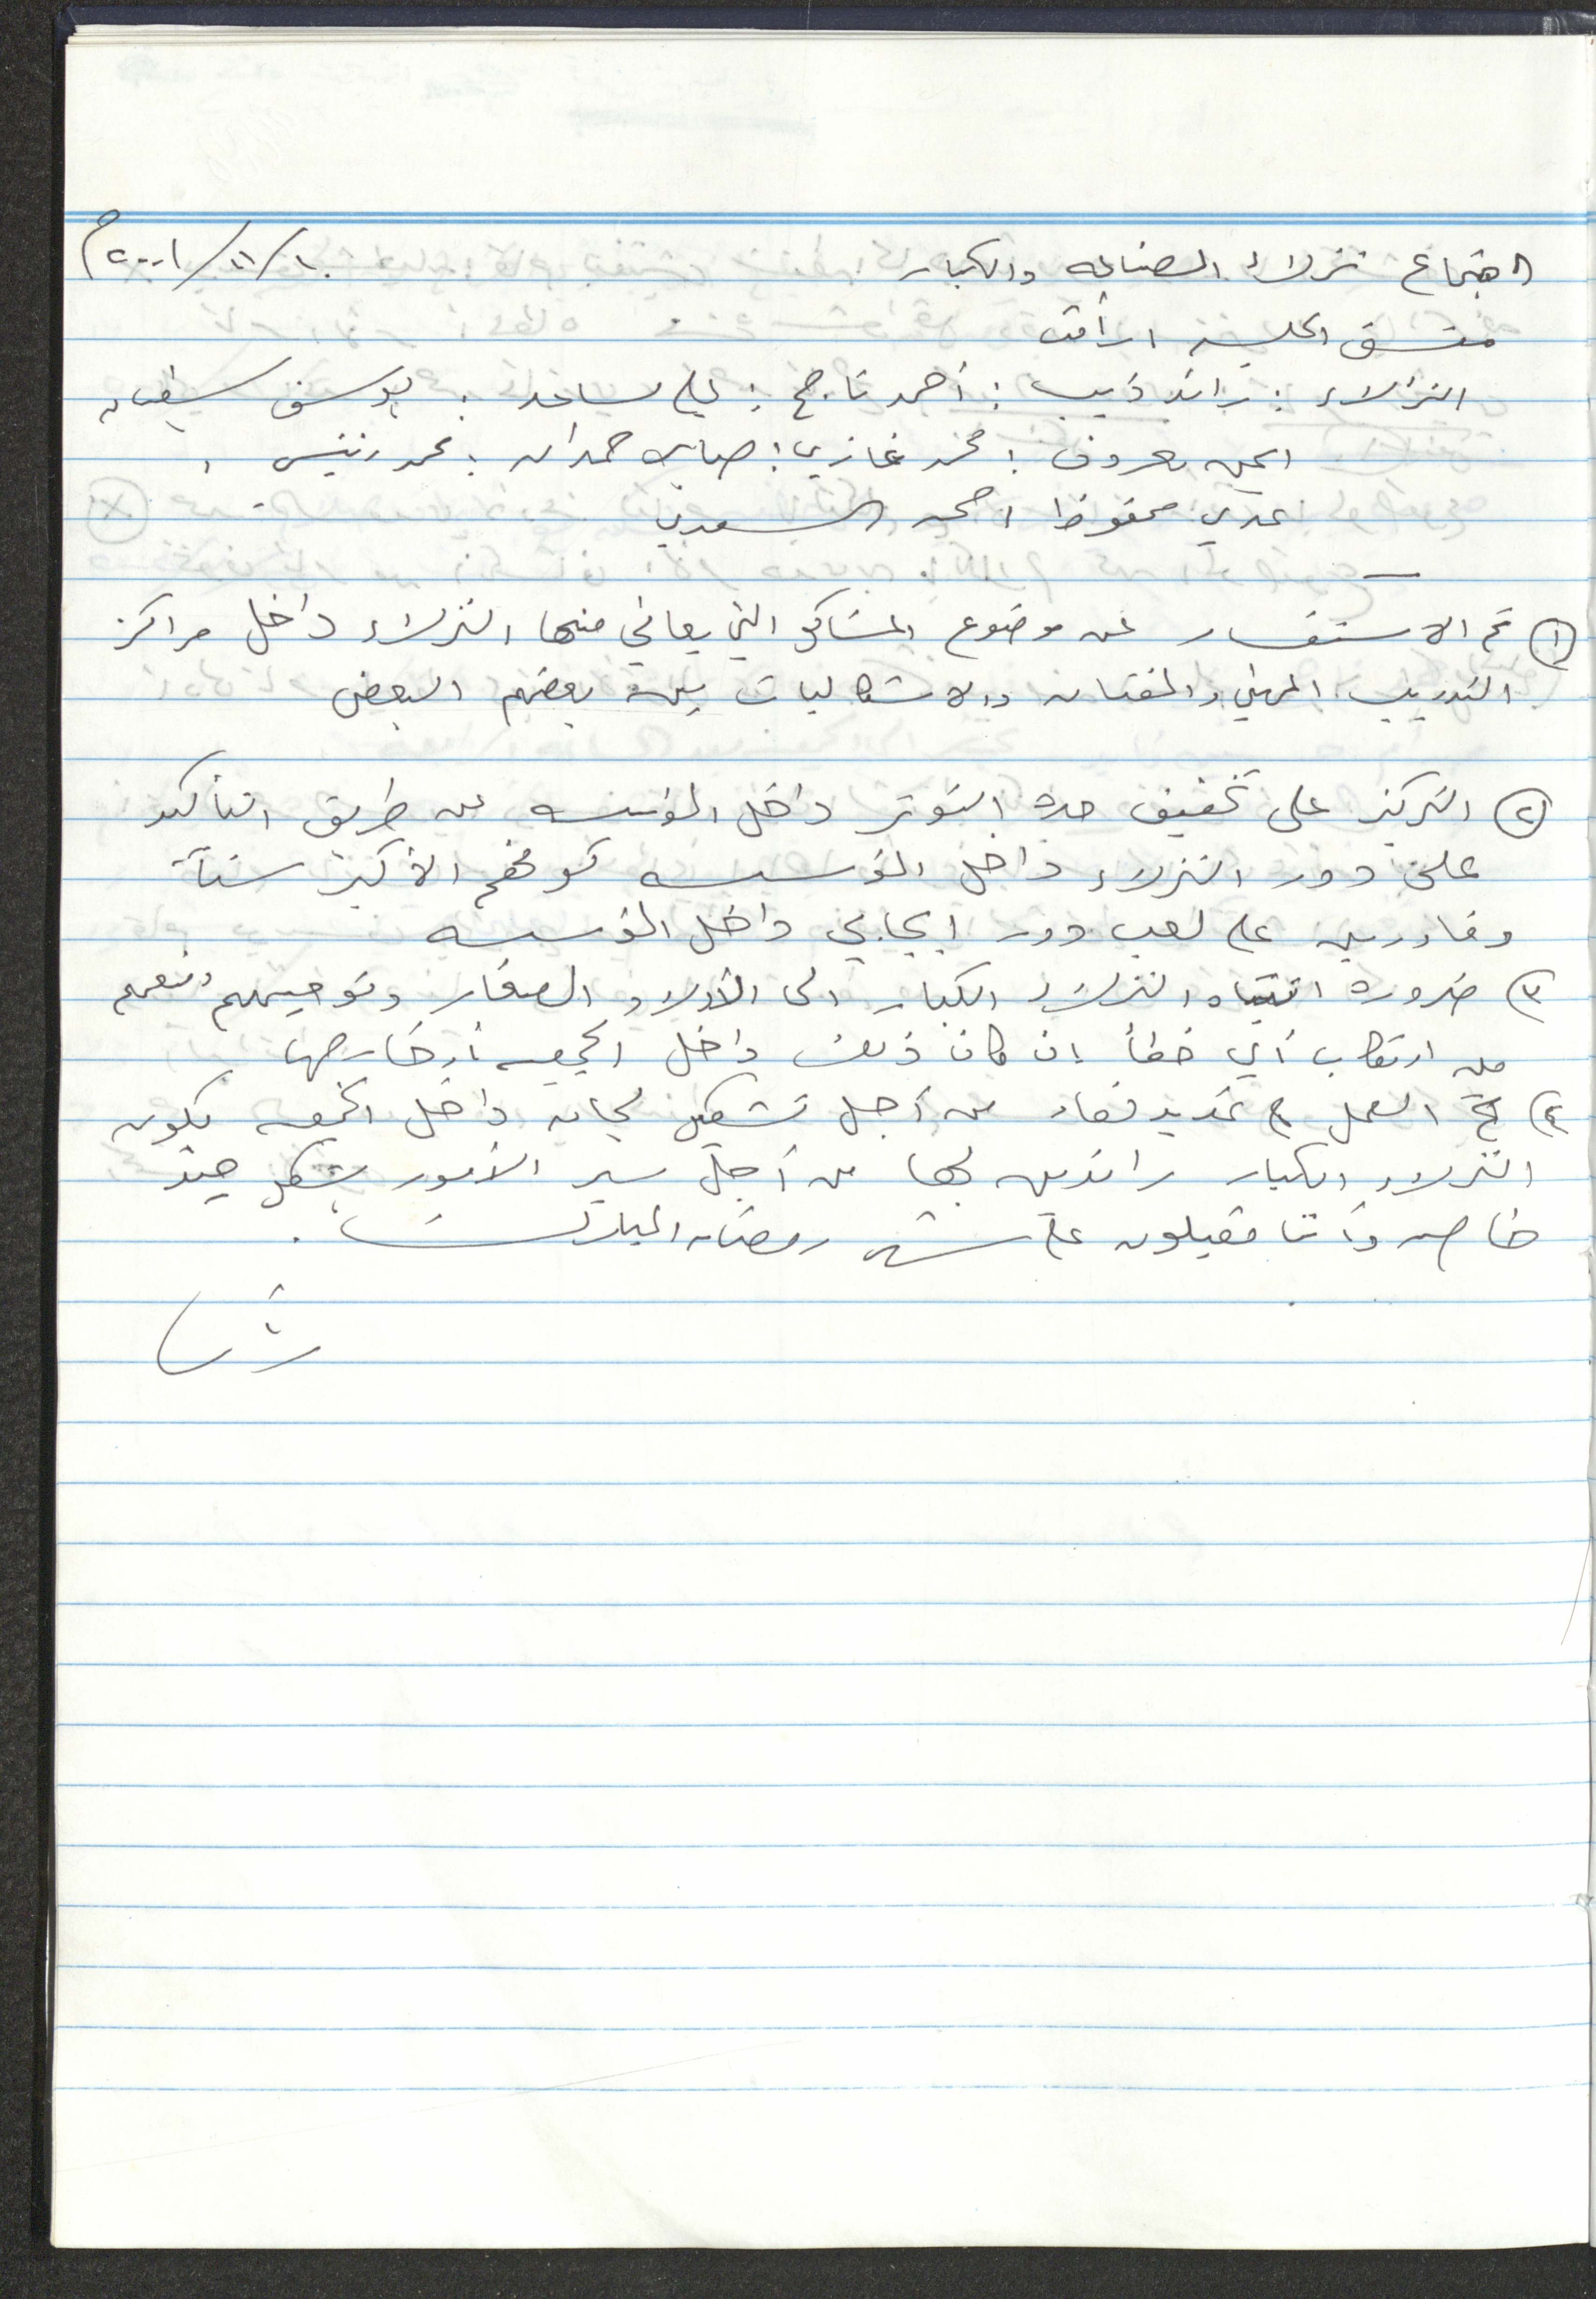 اجتماع نزلاء الصناعه والكبار ١٠/١١/٢٠٠١م
منسق الجلسه رأفت
النزلاء : رائد ذيب : أحمد ناجح : علي مساعد : يوسف سفيان
ايمن معروف : محمد غازي : صابر حمدان : محمد
عدي محفوظ احمد السعدي
١) تم الاستفسار عن موضوع المشاكل التي يعاني منها النزلاء داخل مراكز
التدريب المهني والفتيان والاشكاليات بين بعضهم البعض
٢) التركيز على تخفيف حدة التوتر داخل المؤسسه عن طريق التأكيد
على دور النزلاء داخل المؤسسه كونهم الأكبر سناً
وقادرين على لعب دور ايجابي داخل المؤسسه
٣) ضرورة انتباه النزلاء الكبار الى الأولاد الصغار وتوجيههم ومنعهم
من ارتكاب أي خطأ ان كان ذلك داخل الجمعيه أو خارجها
٤) تم العمل على تحديد لقاء من أجل تشكيل لجان داخل الجمعيه يكون
النزلاء الكبار رائدين لها من أجل سير الأمور بشكل جيد
خاصه وأننا مقبلون على شهر رمضان المبارك .